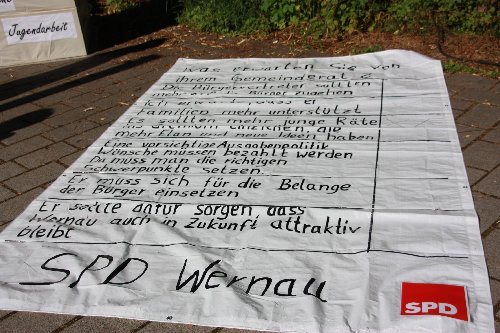 Jugendarbeit
Was erwarten Sie von
ihrem Gemeinderat?
Die Bürgervertreter sollten
Bürger zugehen
Familien mehr unterstützt
Es sollten mehr junge Räte
die
mehr Elan und neue Ideen haben
Eine vorsichtige Ausgabenpolitik
Wünsche müssen bezahlt werden
Da muss man die richtigen
Schwerpunkte setzen.
Er muss sich für die Belange
der Bürger einsetzen
Er sollte dafür sorgen, dass
Wernau auch in Zukunft attraktiv
bleibt
SPD Wernau
SPD